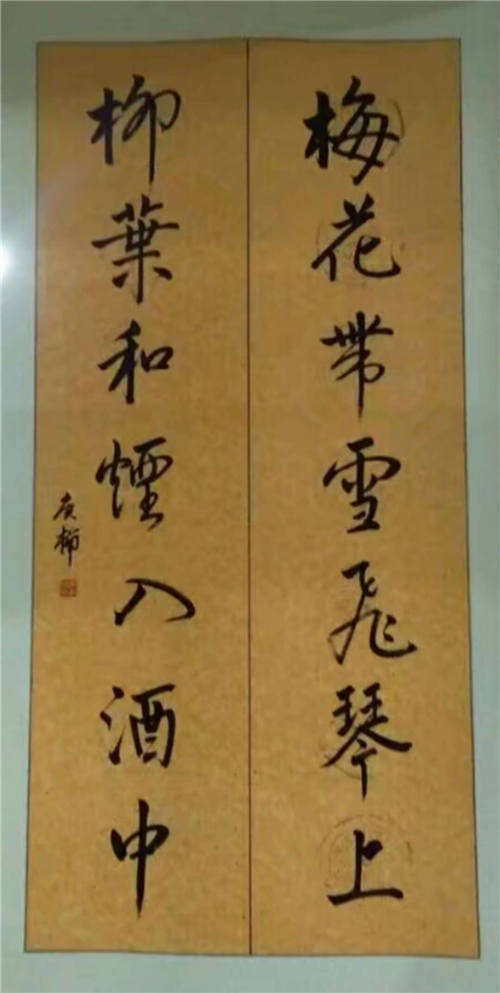 梅花带雪飛琴上
柳葉和煙入酒中